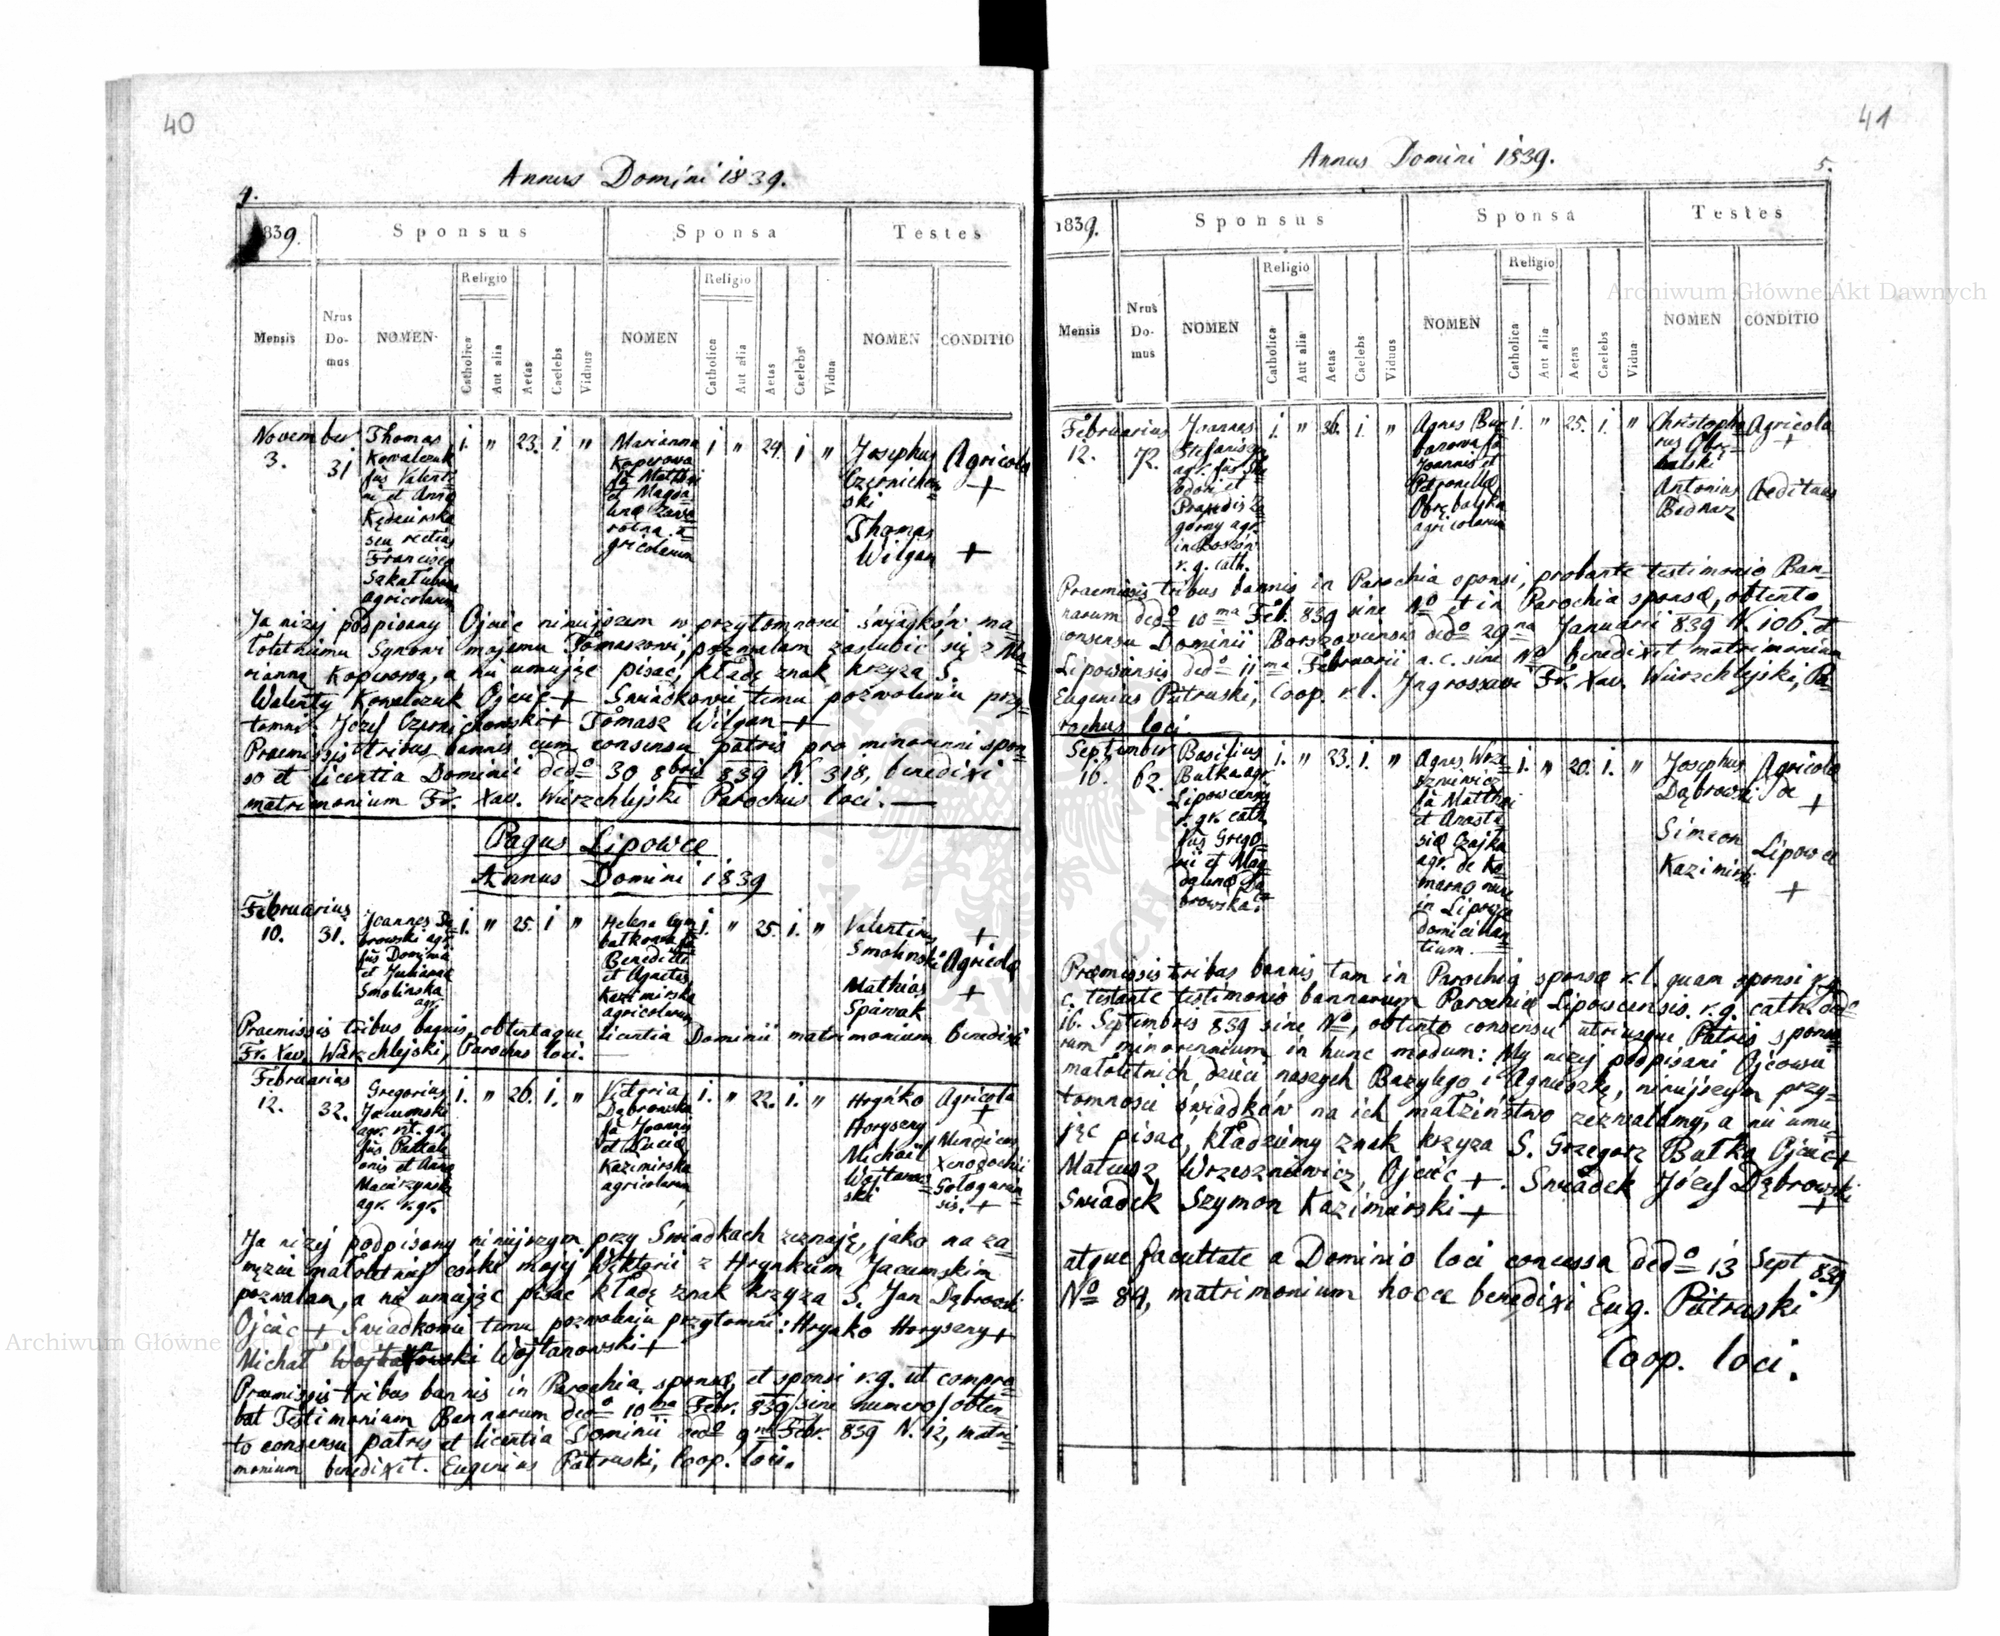 40
Annus Domini 1839.
4.
1839.
Sponsus
Sponsa
Testes
Mensis
Nrus Do- mus
NOMEN
Religio
Catholica
Aut alia
Aetas
Caelebs
Viduus
NOMEN
Religio
Catholica
Aut alia
Aetas
Caelebs
Vidua
NOMEN
CONDITIO
November
3.
31
Thomas
Kowalczuk
fus Valenti=
ni et Anna
seu rectius
Francisca
agricolarum
i. " 23. i. "
Marianna
Koperowa
fa Matthei
et Magda=
gricolarum
i " 24. i "
Josephus
Czernichow=
ski
Thomas
Wilgan
Agricola
+
+
Ja niżej podpisany Ojciec niniejszem w przytomności świadków ma=
łoletniemu Synowi mojemu Tomaszowi, pozwalam zaślubić się z Ma=
rianną Koperową, a nie umiejąc pisać, kładę znak krzyża S.
Walenty Kowalczuk Ojciec + Świadkowie temu pozwoleniu przy=
tomni: Józef Czernichowski + Tomasz Wilgan +
Praemissis tribus bannis cum consensu patris pro minorenni spon=
so et licentia Dominii ded° 30 8bris 839 N. 318, benedixi
matrimonium Fr. Xav. Wierzchlejski Parochus loci. —
Pagus Lipowce
Annus Domini 1839
Februarius
10.
31.
Joannes Da=
browski agr.
fus Domina
et Julianna
Smolinska
agr.
i. " 25. i "
Helena
Benedicti
et Agnetis
Kazimirska
agricolarum
i. " 25. i. "
Valentinus
Smolinski
Mathias
Spiwak
+
Agricola
+
Praemissis tribus bannis, obtentaque licentia Dominii matrimonium benedixi
Fr. Xav. Wierzchlejski, Parochus loci.
Februarius
12.
32.
Gregorius
Jacumski
agr. rit. gr.
agr. r. gr.
i. " 26. i. "
Victoria
Dąbrowska
fa Joannis
et Lucia
Kazimirska
agricolarum
i. " 22. i. "
Hryńko
Horyszny
Michael
Wojtanow=
ski
Agricola
+
Mendicus
Xenodochii
Gologuren=
sis. +
Ja niżej podpisany niniejszym przy Świadkach zeznaję, jako na za=
mężcie małoletniej córki mojej Wiktorii z Hryńkiem Jacumskim
pozwalam, a nie umiejąc pisać kładę znak krzyża S. Jan Dąbrowski
Ojciec + Świadkowie temu pozwoleniu przytomni: Hryńko Horyszny +
Michał Wojtanowski +
Praemissis tribus bannis in Parochia sponsae, et sponsi r.g. ut compro=
bat Testimonium Bannorum ded° 10ma Febr. 839 /sine numero/ obten=
to consensu patris et licentia Dominii ded° 9na Febr. 839 N. 12, matri=
monium benedixit. Eugenius Pietruski, Coop. loci.
41
Annus Domini 1839.
5.
1839.
Sponsus
Sponsa
Testes
Mensis
Nrus Do- mus
NOMEN
Religio
Catholica
Aut alia
Aetas
Caelebs
Viduus
NOMEN
Religio
Catholica
Aut alia
Aetas
Caelebs
Vidua
NOMEN
CONDITIO
Februarius
12.
72.
Joannes
agr.
odori et
agr.
r. g. cath.
i. " 36. i. "
Agnes
Joannis et
Petronella
agricolarum
i. " 25. i. "
Christopho=
rus
Antonius
Bednarz
Agricola
+
Aedituus
Praemissis tribus bannis in Parochia sponsi, probante testimonio Ban=
norum ded° 10ma Feb. 839 sine N° et in Parochia sponsae, obtento
consensu Dominii ded° 29na Januarii 839 N. 106. et
Lipowcensis ded° 11ma Februarii a.c. sine N° benedixit matrimonium
Eugenius Pietruski, Coop. r.l. Ingrossavi Fr. Xav. Wierzchlejski, Pa=
rochus loci
September
16.
62.
Basilius
Bałka agr.
Lipowcensis
r. gr. cath.
fus Grego=
rii et Mag=
dalena Dą=
browska.
i. " 23. i. "
Agnes Wrze=
szniewicz
fa Matthei
et Anasta=
sia Czajka
agr. de Ko=
marno nunc
in Lipowce
domicilian=
tium
i. " 20. i. "
Josephus
Dąbrowski
Simeon
Kazimirski
Agricola
de
+
Lipowce
+
Praemissis tribus bannis tam in Parochia sponsae r.l. quam sponsi r.g.
c. testante testimonio bannorum Parochia Lipowcensis r.g. cath. ded°
16. Septembris 839 sine N°, obtento consensu utriusque Patris sponso=
rum minorennium in hunc modum: My niżej podpisani Ojcowie
małoletnich dzieci naszych Bazylego i Agnieszkę, niniejszym przy=
tomności świadków na ich małżeństwo zezwalamy, a nie umie=
jąc pisać, kładziemy znak krzyża S. Grzegorz Bałka Ojciec +
Mateusz Wrzeszniewicz, Ojciec +. Świadek Józef Dąbrowski +
Świadek Szymon Kazimirski +
atque facultate a Dominio loci concessa ded° 13 Sept 839
N° 89, matrimonium hocce benedixi Eug. Pietruski
Coop. loci.
Archiwum Główne Akt Dawnych
Archiwum Główne Akt Dawnych